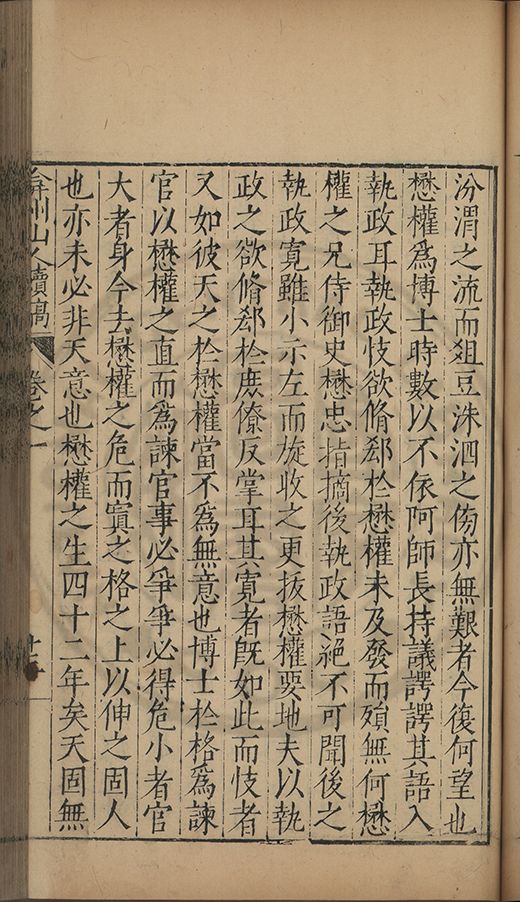 汾渭之流而俎豆洙泗之傍亦無艱者今復何望也
懋權爲博士時數以不依阿師長持議諤諤其語入
執政耳執政忮欲脩郄於懋權未及發而殞無何懋
權之兄侍御史懋忠指摘後執政語絕不可聞後之
執政寛雖小示左而旋收之更拔懋權要地夫以執
政之欲脩郄於庶僚反掌耳其寛者旣如此而忮者
又如彼天之於懋權當不爲無意也博士於格爲諫
官以懋權之直而爲諫官事必爭爭必得危小者官
大者身今去懋權之危而寘之格之上以伸之固人
也亦未必非天意也懋權之生四十二年矣天固無
弇州山人續稿
卷之一
十二